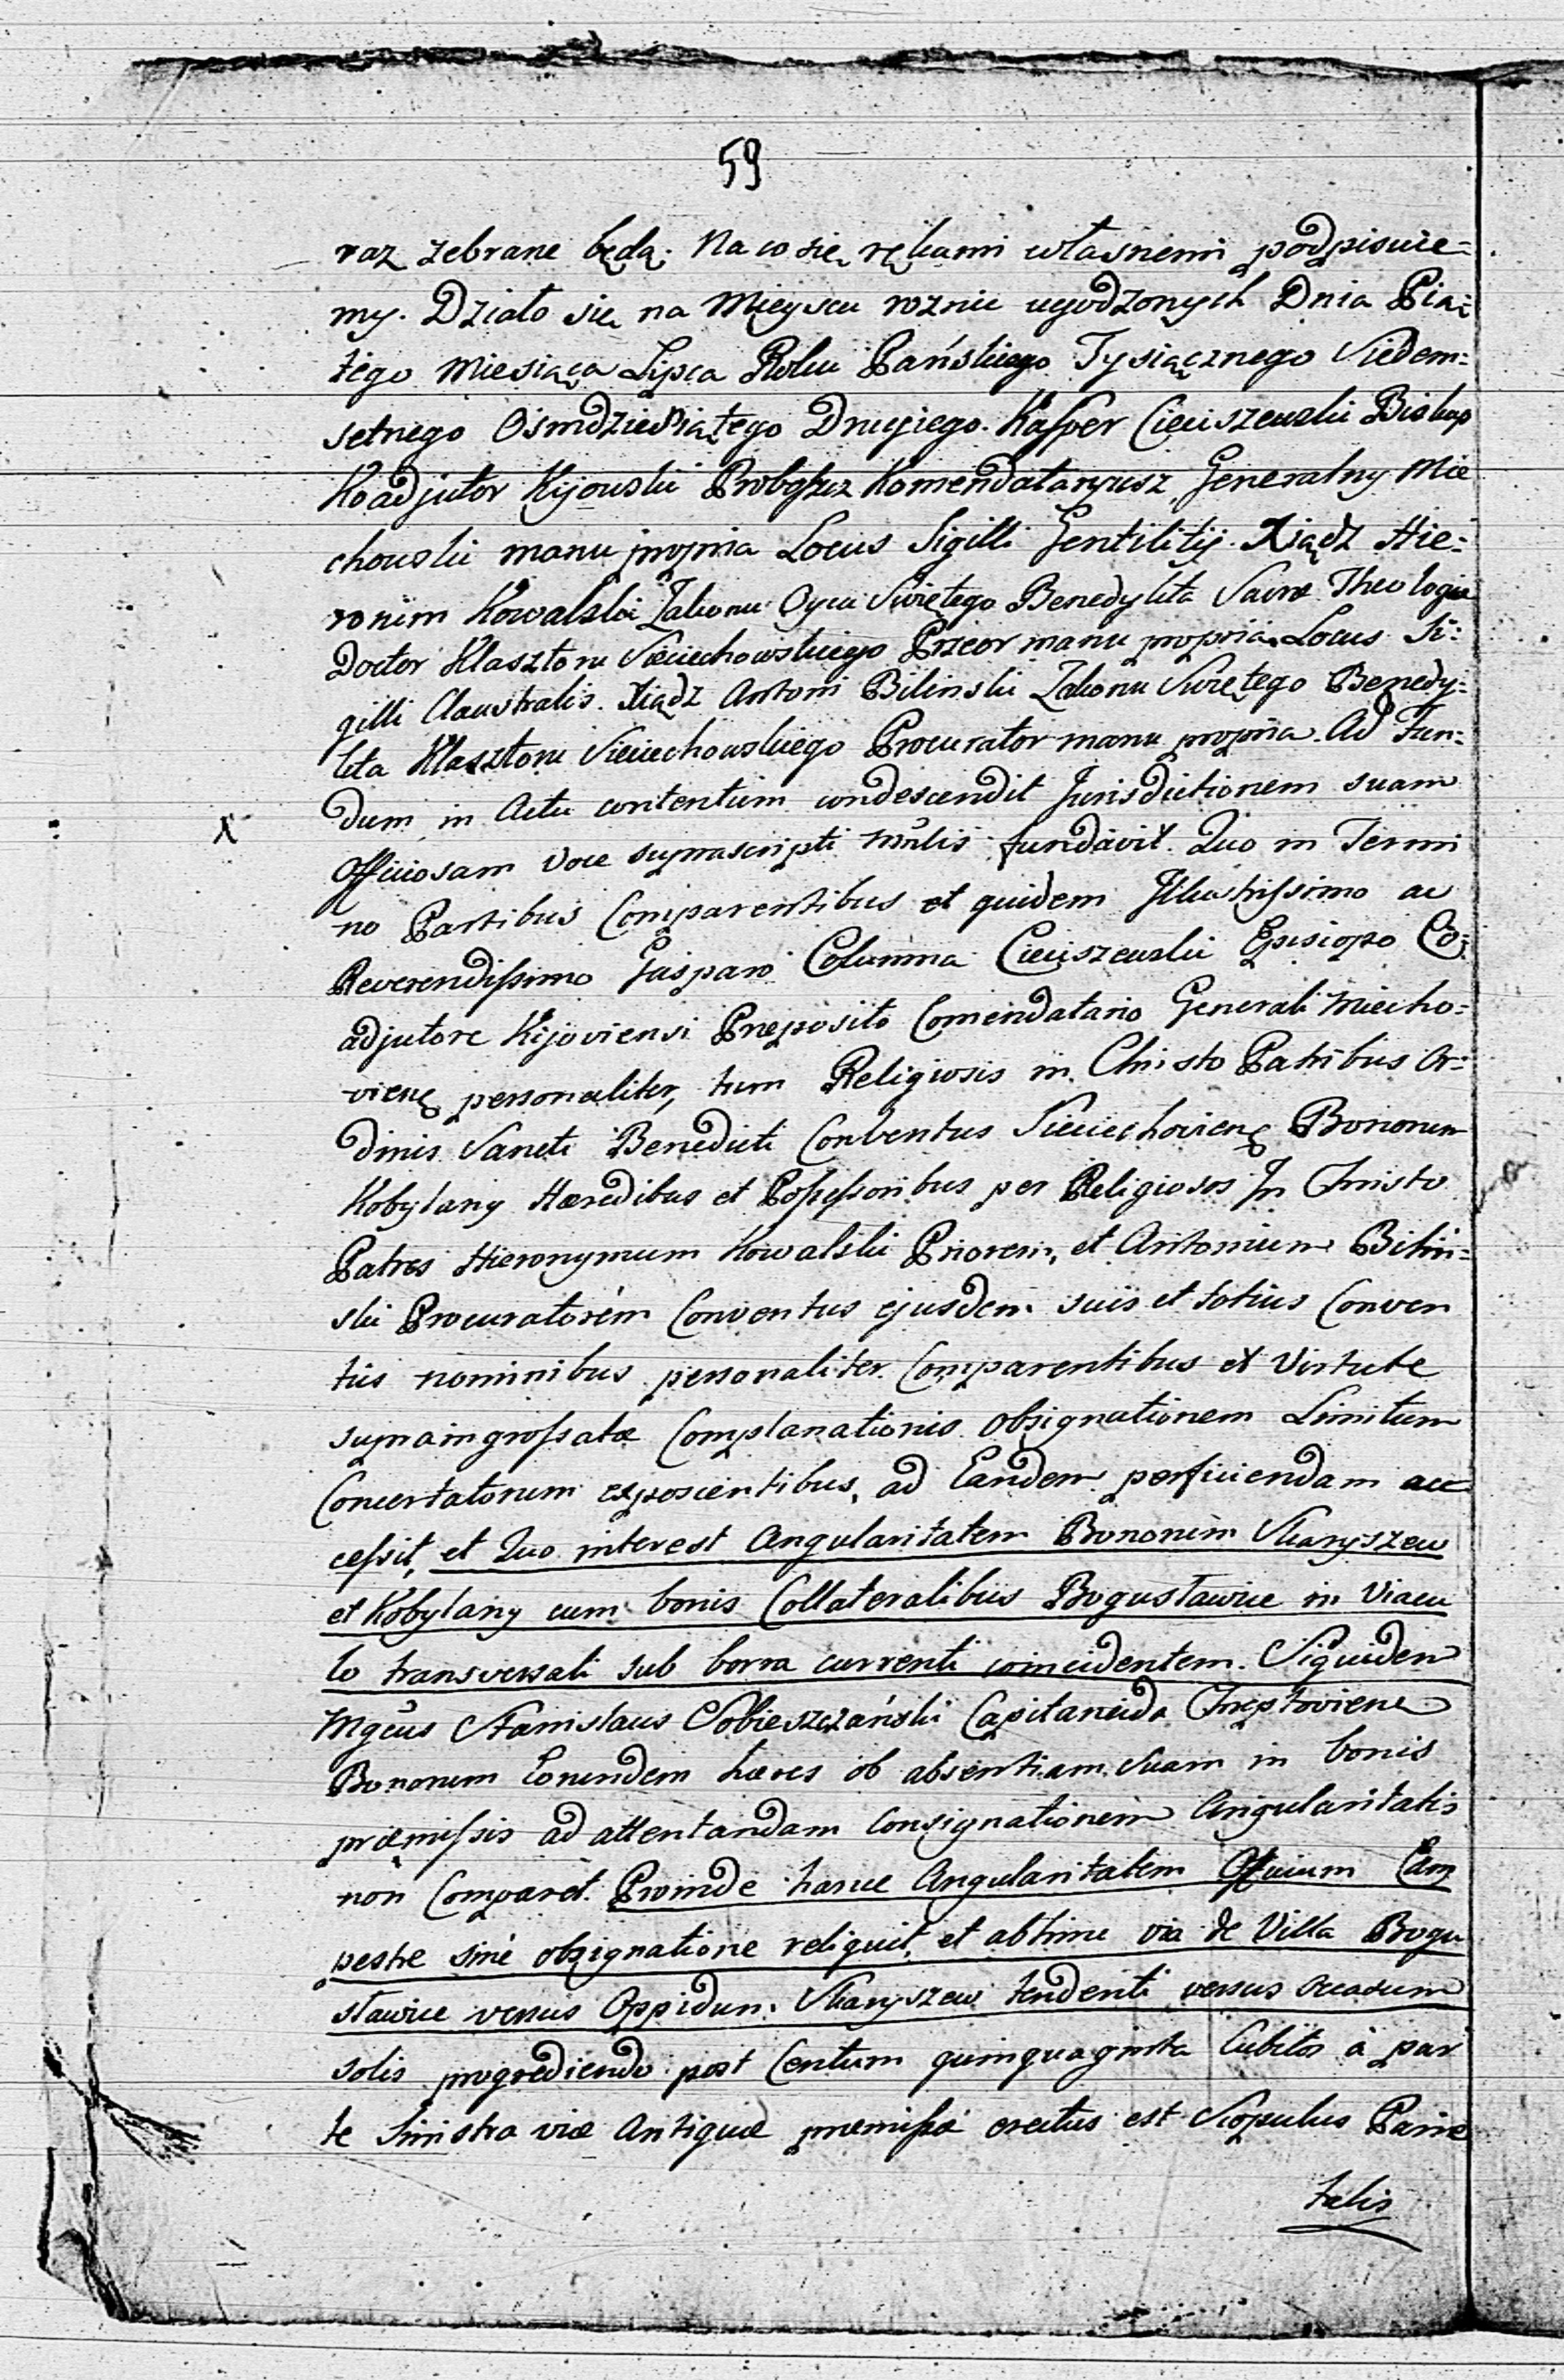 59
raz zebrane będą. Na co się rękami własnemi podpisuie=
my. Działo się na Mieyscu roznic ugodzonych Dnia Pią=
tego Miesiąca Lipca Roku Pańskiego Tysiącznego Siedem=
setnego Osmdziesiątego Drugiego. Kasper Cieciszewski Biskup
Koadjutor Kijowski Proboszcz Komendataryusz Generalny Mie
chowski manu propria Locus Sigilli Gentilitij. Xiądz Hie=
ronim Kowalski Zakonu Oyca Swiętego Benedykta Sacræ Theologiæ
Doctor Klasztoru Sieciechowskiego Przeor manu propria. Locus Si=
gilli Claustralis. Xiądz Antoni Bilinski Zakonu Swiętego Benedy=
kta Klasztoru Sieciechowskiego Procurator manu propria. Ad Fun=
dum in Actu contentum condescendit Jurisdictionem suam
X
Officiosam voce suprascripti mnlis fundavit. Quo in Termi
no Partibus Comparentibus et quidem Illustrissimo ac
Reverendissimo Gasparo Columna Cieciszewski Episcopo Co=
adjutore Kijoviensi Præposito Comendatario Generali Miecho=
viens personaliter, tum Religiosis in Christo Patribus Or=
dinis Sancti Benedicti Conventus Sieciechoviens Bonorum
Kobylany Hæredibus et Possessoribus per Religiosos In Christo
Patres Hieronymum Kowalski Priorem, et Antonium Bilin=
ski Procuratorem Conventus ejusdem suis et totius Conven
tus nominibus personaliter Comparentibus et Virtute
supraingrossatæ Complanationis obsignationem Limitum
Concertatorum exposcentibus, ad Eandem perficiendam ac
cessit, et Quo interest Angularitatem Bonorum Skaryszew
et Kobylany cum bonis Collateralibus Bogusławice in Viacu
lo transversali sub borra currenti coincidentem. Siquidem
Mgcus Stanislaus Sobieszczański Capitaneida Chręptoviens
Bonorum Eorundem hæres ob absentiam Suam in bonis
præmissis ad attentandam Consignationem Angularitatis
non Comparet. Proinde hance Angularitatem Officium Cam
pestre sine obsignatione reliquit, et abhinc via de Villa Bogu
sławice versus Oppidum Skaryszew tendenti versus occasum
solis progrediendo post Centum quinquaginta Cubitos à par
te Sinistra viæ Antiquæ præmissæ erectus est Scopulus Parie
talis